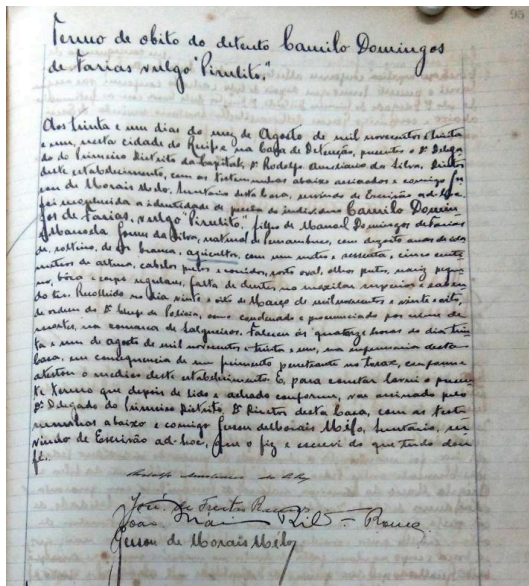 95
Termo de obito do detento Camilo Domingos
de Farias vulgo "Pirulito".
Aos trinta e um dias do mez de Agosto de mil novecentos e trinta
e um, nesta cidade do Recife, na Casa de Detenção, presentes o Dr Delega
do do Primeiro Distrito da Capital, Dr Rodolfo Aureliano da Silva, Diretor
deste estabelecimento, com as testemunhas abaixo assinadas e comigo Ger
son de Morais Melo, funtario desta Casa, servindo de Escrivão ad-hoc,
foi reconhecida a identidade de pessôa do individuo Camilo Domin
gos de Farias, vulgo "Pirulito", filho de Manoel Domingos de Farias
e Manoela da Silva, natural de Pernambuco, com dezoito anos de ida
de, solteiro, de côr branca, agricultor, com um metro e sessenta e cinco centi
metros de altura, cabelos pretos e corridos, rosto oval, olhos pretos, nariz peque
no, bôca e corpo regulares, falta de dentes no maxilar superior e saben
do ler. Recolhido no dia vinte e oito de Março de mil novecentos e vinte e oito,
de ordem do Dr Chefe de Policia, como condenado e pronunciado por crime de
mortes, na comarca de Salgueiro. Faleceu ás quatorze horas do dia trin
ta e um de agosto de mil novecentos e trinta e um, na enfermaria desta
Casa, em consequencia de um ferimento penetrante no torax, conforme
atestou o medico deste estabelecimento. E, para constar lavrei o presen
te Termo que depois de lido e achado conforme, vai assinado pelo
Dr Delegado do Primeiro Distrito, Dr Diretor desta Casa, com as teste
munhas abaixo e comigo Gerson de Morais Melo, funtario, ser
vindo de Escrivão ad-hoc, que o fiz e escrevi do que tudo dou
fé.
José de Freitas
João
Gerson de Morais Mélo